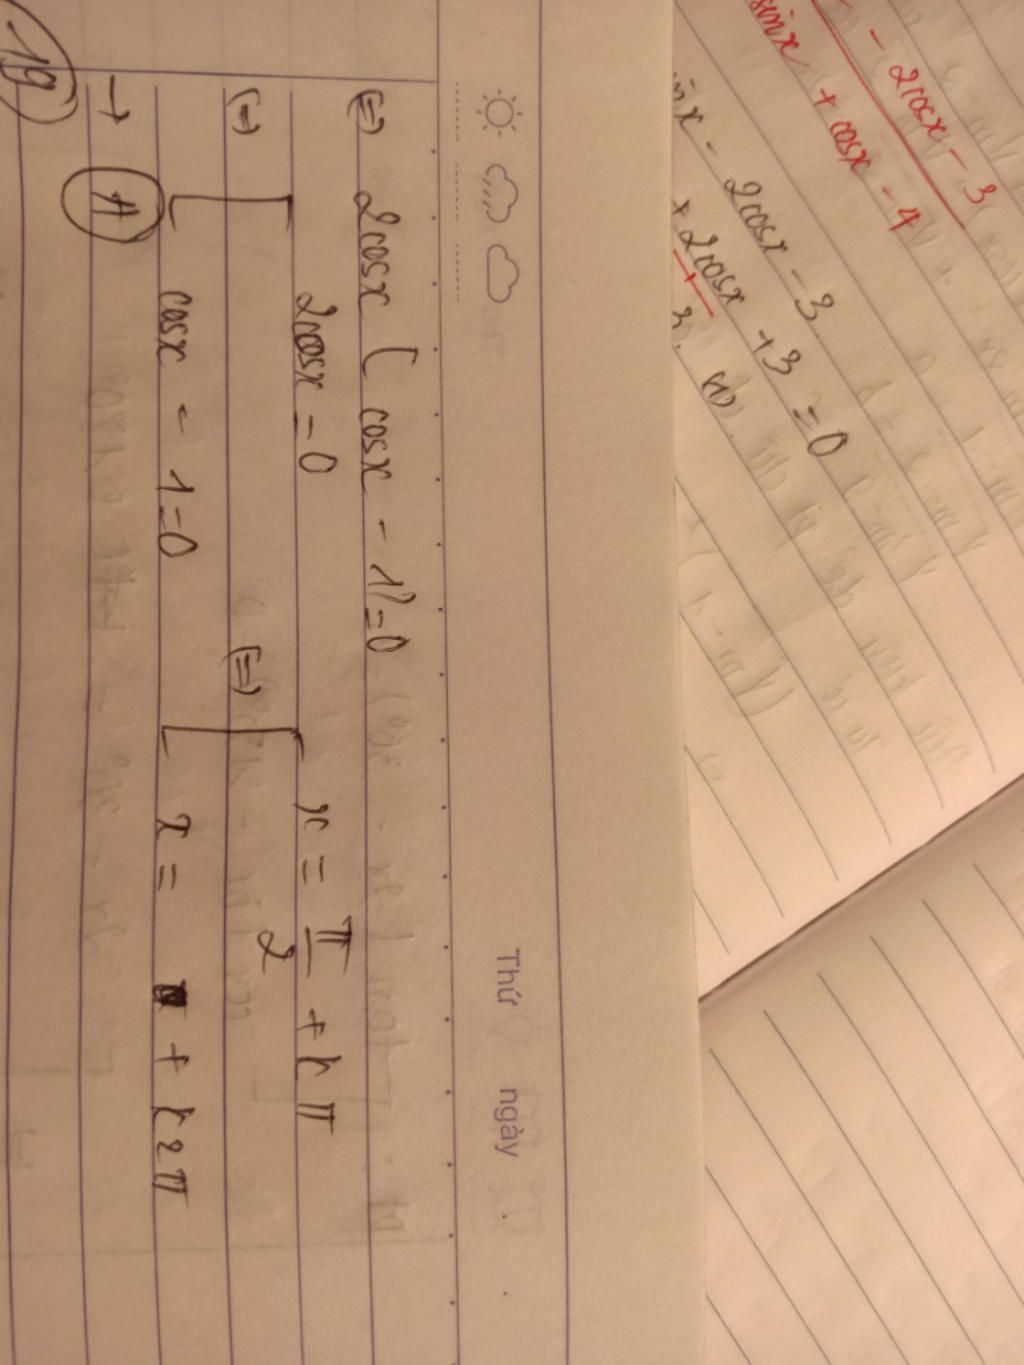 - 2cosx - 3
sinx + cosx - 4
sinx - 2cosx - 3
+ 2cosx + 3 = 0
Thứ ngày . .
(=) 2cosx ( cosx - 1) = 0
2cosx = 0
x = π/2 + kπ
(=)
(=)
cosx - 1 = 0
x = + k2π
→ A
19